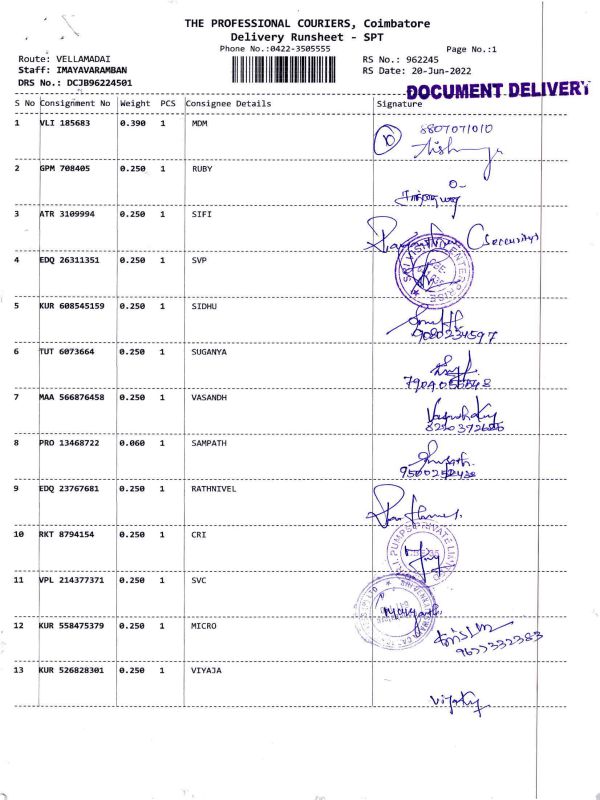 THE PROFESSIONAL COURIERS, Coimbatore
Delivery Runsheet - SPT
Phone No.:0422-3505555
Page No.:1
Route: VELLAMADAI
RS No.: 962245
Staff: IMAYAVARAMBAN
RS Date: 20-Jun-2022
DRS No.: DCJB96224501
DOCUMENT DELIVERY
S No Consignment No Weight PCS Consignee Details Signature
1 VLI 185683 0.390 1 MDM
8807071010
2 GPM 708405 0.250 1 RUBY
3 ATR 3109994 0.250 1 SIFI
(Security)
4 EDQ 26311351 0.250 1 SVP
SRI VISHNU ENTERPRISE
5 KUR 608545159 0.250 1 SIDHU
9080234597
6 TUT 6073664 0.250 1 SUGANYA
7 MAA 566876458 0.250 1 VASANDH
8 PRO 13468722 0.060 1 SAMPATH
9 EDQ 23767681 0.250 1 RATHNIVEL
10 RKT 8794154 0.250 1 CRI
PUMPS PRIVATE LIMITED
11 VPL 214377371 0.250 1 SVC
12 KUR 558475379 0.250 1 MICRO
13 KUR 526828301 0.250 1 VIYAJA